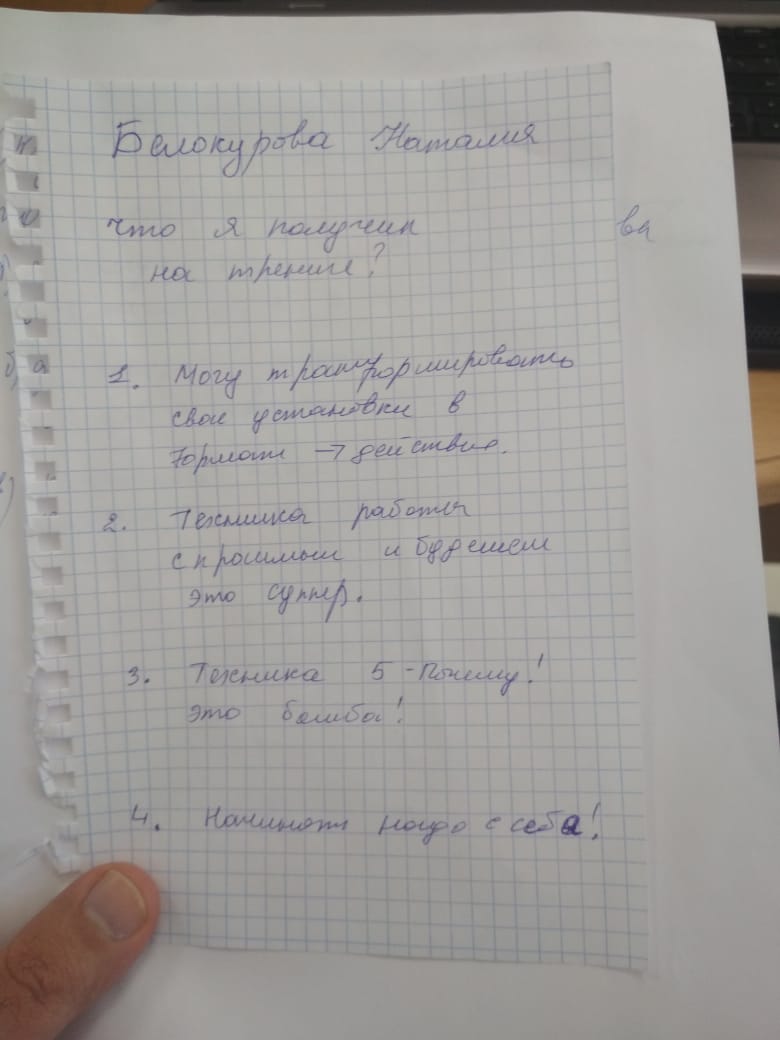 Белокурова Наталия
Что я получил
на тренинге?
1. Могу трансформировать
свои установки в
формат → действие.
2. Техника работы
с прошлым и будущем
это суппер.
3. Техника 5 - Почему!
это бомба!
4. Начинать надо с себя!
ва